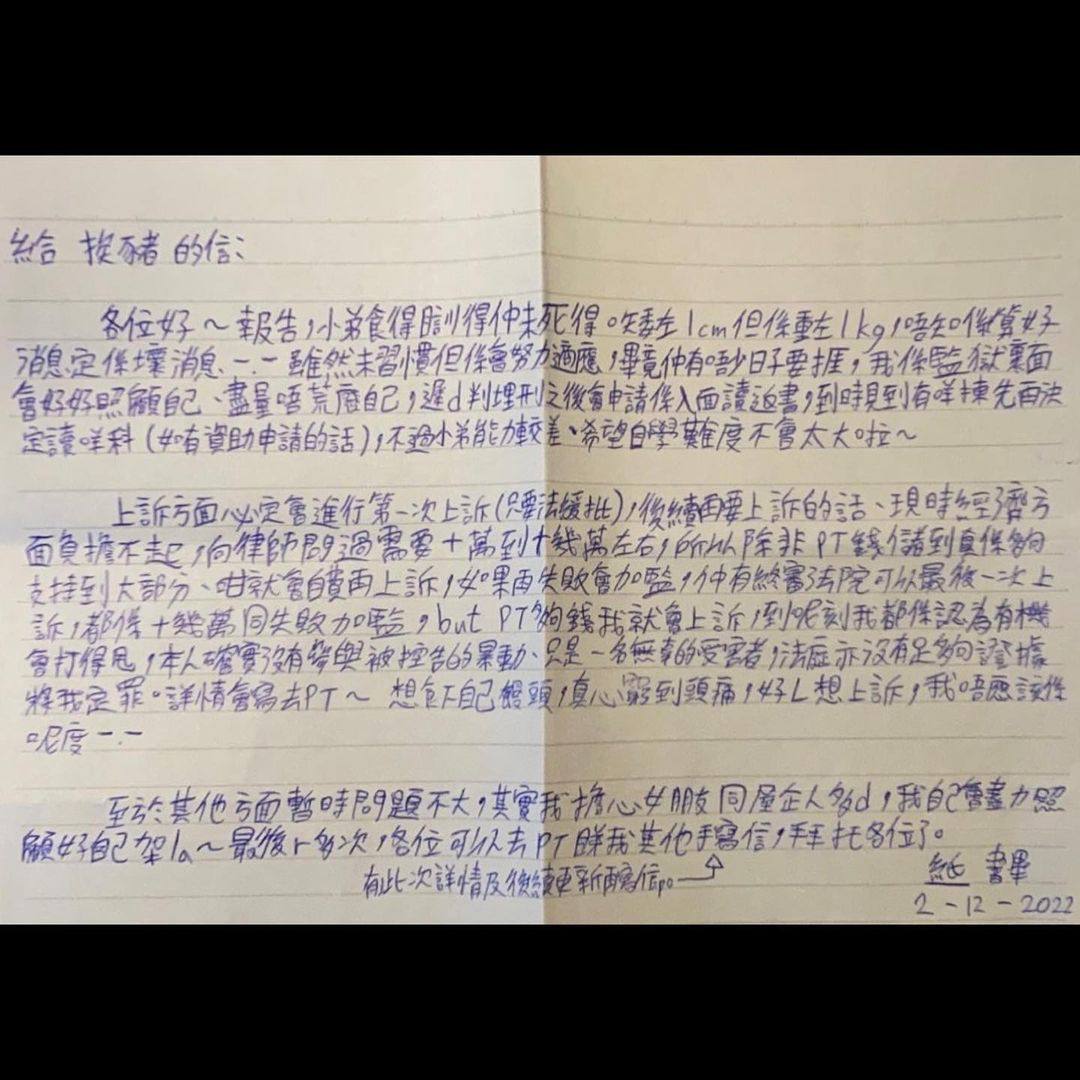 給 挨豬 的信：
各位好～報告，小弟食得瞓得仲未死得。咗矮左1cm但係重左1kg，唔知係算好
消息定係壞消息一.一 雖然未習慣但係會努力適應，畢竟仲有唔少日子要捱，我係監獄裏面
會好好照顧自己、盡量唔荒廢自己，遲d判埋刑之後會申請係入面讀返書，到時見到有咩揀先再決
定讀咩科(如有資助申請的話)，不過小弟能力較差、希望自學難度不會太大啦～
上訴方面必定會進行第一次上訴(只要法援批)，後續再要上訴的話、現時經濟方
面負擔不起，向律師問過需要十萬到十幾萬左右，所以除非PT錢儲到真係夠
支持到大部分、咁就會自費再上訴，如果再失敗會加監，仲有終審法院可以最後一次上
訴，都係十幾萬同失敗加監，but PT夠錢我就會上訴，到呢刻我都係認為有機
會打得甩，本人確實沒有參與被控告的暴動、只是一名無辜的受害者，法庭亦沒有足夠證據
將我定罪。詳情會寫去PT～ 想食下自己饅頭，真心窮到頭痛，好L想上訴，我唔應該係
呢度一.一
至於其他方面暫時問題不大，其實我擔心女朋友同屋企人多d，我自己會盡力照
顧好自己架la～最後r多次，各位可以去PT睇我其他手寫信，拜托各位了。
有此次詳情及後續更新再寫信po
紙 書畢
2-12-2022